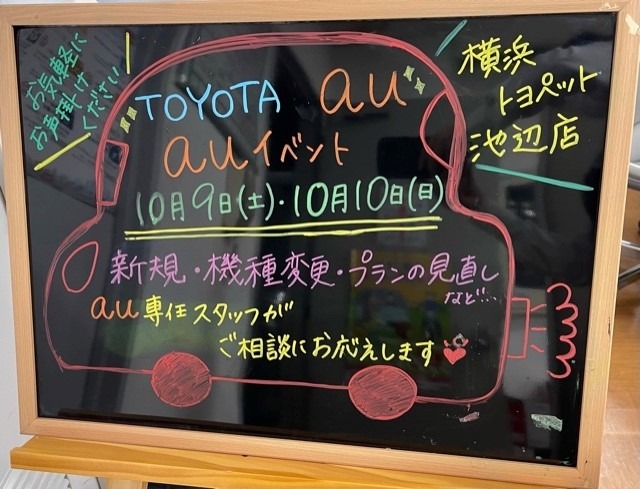 お気軽に
お声掛け
ください
TOYOTA au
auイベント
10月9日(土)・10月10日(日)
横浜
トヨペット
池辺店
新規・機種変更・プランの見直し
など…
au専任スタッフが
ご相談にお応えします